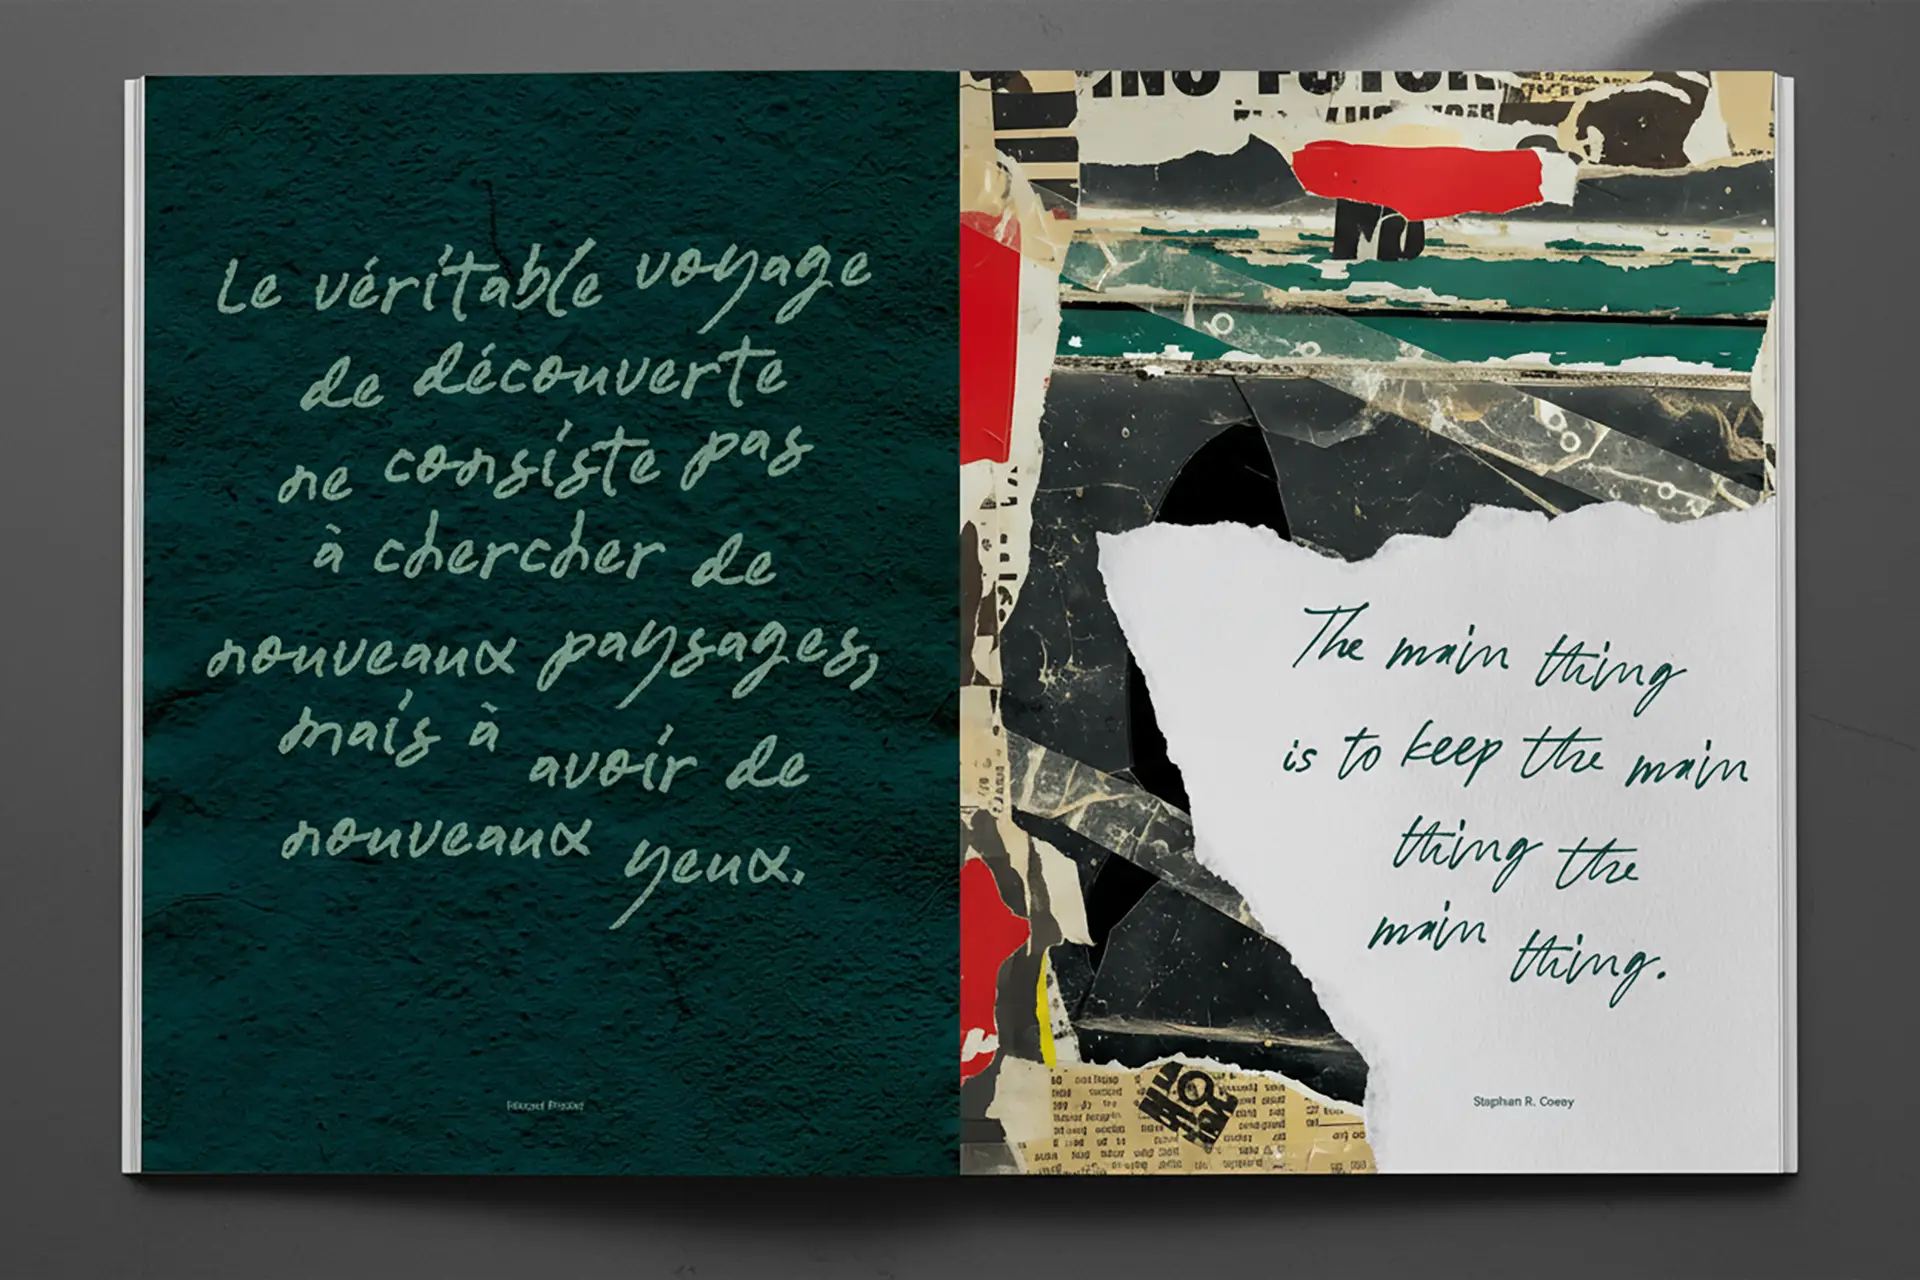 Le véritable voyage
de découverte
ne consiste pas
à chercher de
nouveaux paysages,
mais à avoir de
nouveaux yeux.
NO FUTUR
NO
The main thing
is to keep the main
thing the
main thing.
Stephan R. Covey